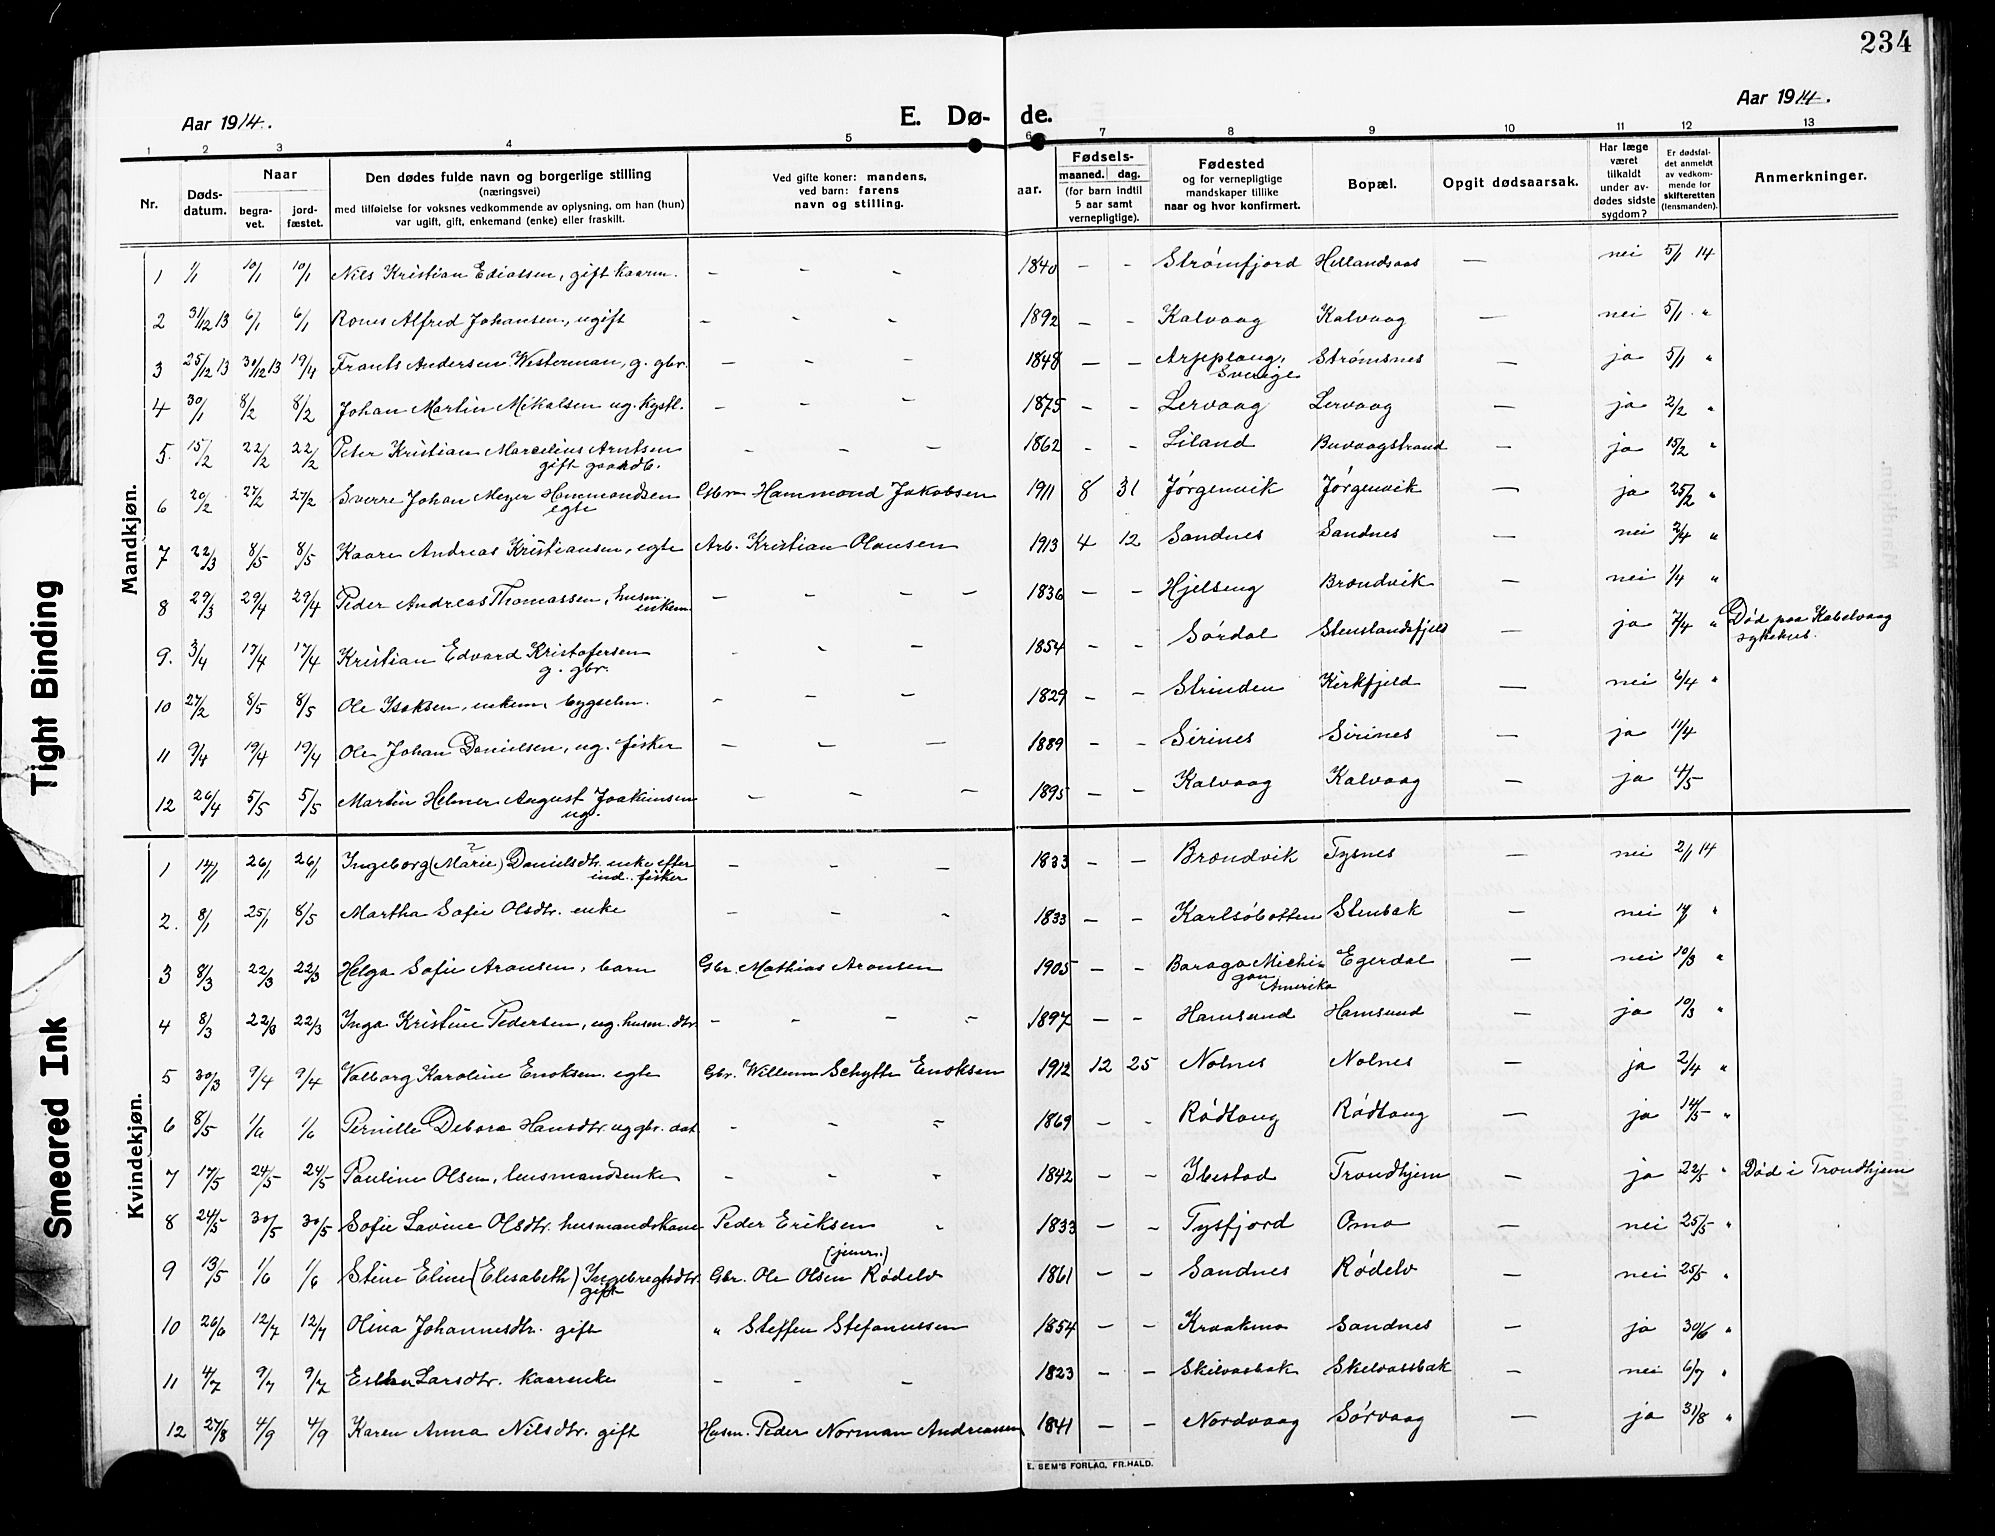 234
Aar 1914.
E. Dø- de.
Aar 1914.
1 2 3 4 5 6 7 8 9 10 11 12 13
Nr.
Døds-
datum.
Naar
begra-
vet.
jord-
fæstet.
Den dødes fulde navn og borgerlige stilling
(næringsvei)
med tilføielse for voksnes vedkommende av oplysning, om han (hun)
var ugift, gift, enkemand (enke) eller fraskilt.
Ved gifte koner: mandens,
ved barn: farens
navn og stilling.
aar.
Fødsels-
maaned. dag.
(for barn indtil
5 aar samt
vernepligtige).
Fødested
og for vernepligtige
mandskaper tillike
naar og hvor konfirmert.
Bopæl.
Opgit dødsaarsak.
Har læge
været
tilkaldt
under av-
dødes sidste
sygdom?
Er dødsfal-
det anmeldt
av vedkom-
mende for
skifteretten
(lensmanden).
Anmerkninger.
Mandkjøn.
1 1/1 10/1 10/1 Nils Kristian Ediassen, gift kaarm. – – – 1840 – – Strømfjord Hellandsaas – nei 5/1 14
2 31/12 13 6/1 6/1 Rones Alfred Johansen, ugift – – – 1892 – – Kalvaag Kalvaag – nei 5/1 "
3 25/12 13 30/12 13 19/4 Frants Andersen Westerman, g. gbr. – – – 1848 – – Arpploug, Strømsnes – ja 5/1 "
Sverige
4 30/1 8/2 8/2 Johan Martin Mikalsen ug. Kystl. – – – 1875 – – Lervaag Lervaag – ja 2/2 "
5. 15/2 22/2 22/2 Peter Kristian Marcelius Arntsen – – – 1862 – – Liland Buvaagstrand – ja 15/2 "
gift gaardb.
6 20/2 27/2 27/2 Sverre Johan Meyer Hammondsen Gbr. Hammond Jakobsen 1911 8 31 Jørgenvik Jørgenvik – ja 25/2 "
egte
7 22/3 8/5 8/5 Kaare Andreas Kristiansen, egte Arb. Kristian Olausen 1913 4 12 Sandnes Sandnes – nei 2/4 "
8 29/3 29/4 29/4 Peder Andreas Thomassen, husm. – – – – 1836 – – Hjelseng Brændvik – nei 1/4 "
enkem.
9. 3/4 17/4 17/4 Kristian Edvard Kristofersen – – – 1854 – – Sørdal Stenslandsfjeld – ja 7/4 " Død paa Kabelvaag
g. gbr. sykehus.
10 27/2 8/5 8/5 Ole Isaksen, enkem. bygselm. – – – 1829 – – Strinden Kirkfjeld – nei 6/4 "
11 9/4 19/4 19/4 Ole Johan Danielsen, ug. fisker – – – 1889 – – Sirines Sirines – ja 11/4
12 26/4 5/5 5/5 Martin Helmer August Joakimsen – – – 1895 – – Kalvaag Kalvaag – ja 4/5
ug.
Kvindekjøn.
1 14/1 26/1 26/1 Ingeborg (Marie) Danielsdtr. enke efter – – – 1833 – – Brændvik Tysnes – nei 2/1 14
ind. fisker
2. 8/1 25/1 8/5 Martha Sofie Olsdtr. enke – – " 1833 – – Karlsøbotten Stenbak – nei "
3 8/3 22/3 22/3 Helga Sofie Aronsen, barn Gbr. Mathias Aronsen 1905 – – Baraga Michi- Egerdal – nei 10/3 "
gan Amerika
4 8/3 22/3 22/3 Inga Kristine Pedersen, ug. husm. dtr. – – – – 1897 – – Hamsund Hamsund – ja 10/3 "
5 30/3 9/4 9/4 Valborg Karoline Enoksen. egte Gbr. Willum Schytte Enoksen 1912 12 25 Nolnes Nolnes – ja 2/4 "
6 8/5 1/6 1/6 Pernille Debora Hansdtr. ug gbr. dat – – – 1869 – – Rødtang Rødtang – ja 14/5 "
7 17/5 24/5 24/5 Pauline Olsen, lensmandsenke – – – 1842 – – Ibestad Trondhjem – ja 22/5 " Død i Trondhjem
8 24/5 30/5 30/5 Sofie Lovine Olsdtr. husmandskone Peder Eriksen " 1833 – – Tysfjord Omo – nei 25/5 "
9 13/5 1/6 1/6 Stine Eline (Elisabeth) Ingebregtsdtr. Gbr. Ole Olsen (junr.) Rødelv 1861 – – Sandnes Rødelv – nei 25/5 "
gift
10 26/6 12/7 12/7 Olina Johannesdtr. gift " Steffen Stefanussen 1854 – – Kraakmo Sandnes – ja 30/6 "
11 4/7 9/7 9/7 Esther Larsdtr. kaarenke – – – 1823 – – Skilvasbak Skelvassbak – nei 6/7 "
12 27/8 4/9 4/9 Karen Anna Nilsdtr. gift Husm. Peder Norman Andreassen 1841 – – Nordvaag Sørvaag – ja 31/8 "
E. SEM'S FORLAG, FR.HALD.
Tight Binding
Smeared Ink